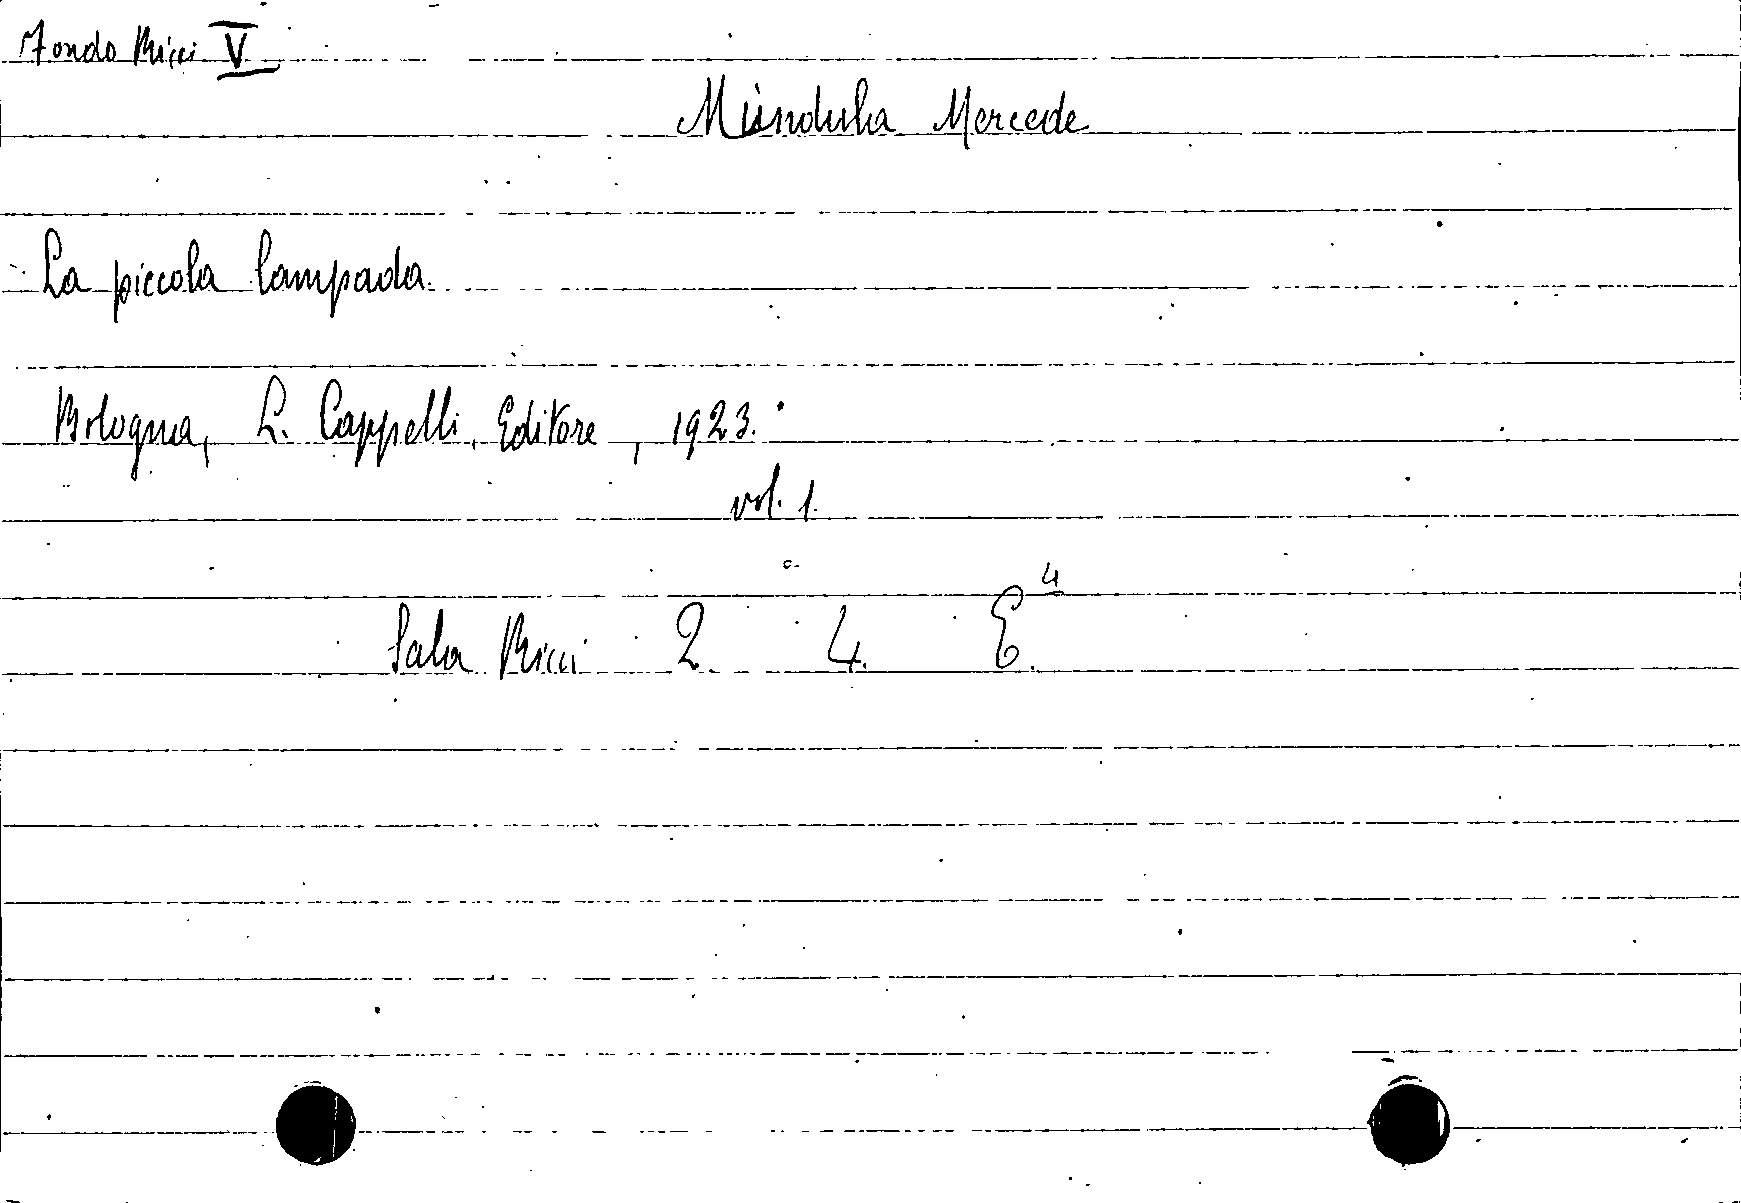 Fondo Ricci V
Mündula Mercede
La piccola lampada
Bologna, L. Cappelli, Editore, 1923.
vol. 1.
4
Sala Ricci 2. 4. E.